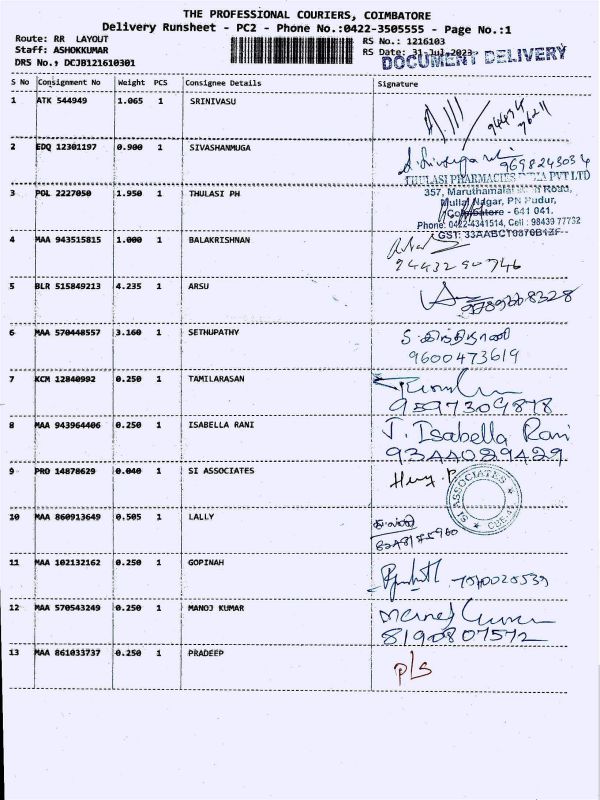 THE PROFESSIONAL COURIERS, COIMBATORE
Delivery Runsheet - PC2 - Phone No.:0422-3505555 - Page No.:1
Route: RR LAYOUT RS No.: 1216103
Staff: ASHOKKUMAR RS Date: 31-Jul-2023
DRS No.: DCJB121610301 DOCUMENT DELIVERY
S No Consignment No Weight PCS Consignee Details Signature
1 ATK 544949 1.065 1 SRINIVASU
2 EDQ 12301197 0.900 1 SIVASHANMUGA
9698243034
THULASI PHARMACIES INDIA PVT LTD
3 POL 2227050 1.950 1 THULASI PH 357, Maruthamalai Road,
Mullai Nagar, PN Pudur,
Coimbatore - 641 041.
Phone: 0422-4341514, Cell : 98439 77732
GST: 33AABCT0870B1ZF
4 MAA 943515815 1.000 1 BALAKRISHNAN
9443290746
5 BLR 515849213 4.235 1 ARSU
6 MAA 570448557 3.160 1 SETHUPATHY
9600473619
7 KCM 12840992 0.250 1 TAMILARASAN
9597309878
8 MAA 943964406 0.250 1 ISABELLA RANI J. Isabella Rani
9344029429
9 PRO 14878629 0.040 1 SI ASSOCIATES
SI ASSOCIATES
10 MAA 860913649 0.505 1 LALLY
11 MAA 102132162 0.250 1 GOPINAH
12 MAA 570543249 0.250 1 MANOJ KUMAR Manoj Kumar
8190807572
13 MAA 861033737 0.250 1 PRADEEP P/S